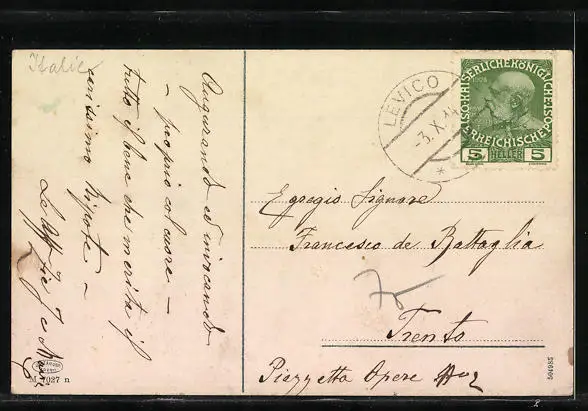 Italie
Augurando ed invocando
- proprio col cuore -
tutto il bene che merita il
carissimo Nipote -
Zie
LEVICO
-3.X.14
*
1908
KAISERLICHEKÖNIGLICHE
ÖSTERREICHISCHEPOST
5 HELLER 5
Egregio Signore
Francesco de Battaglia
Trento
Piazzetta Opere No 2
M 7027 n
504985